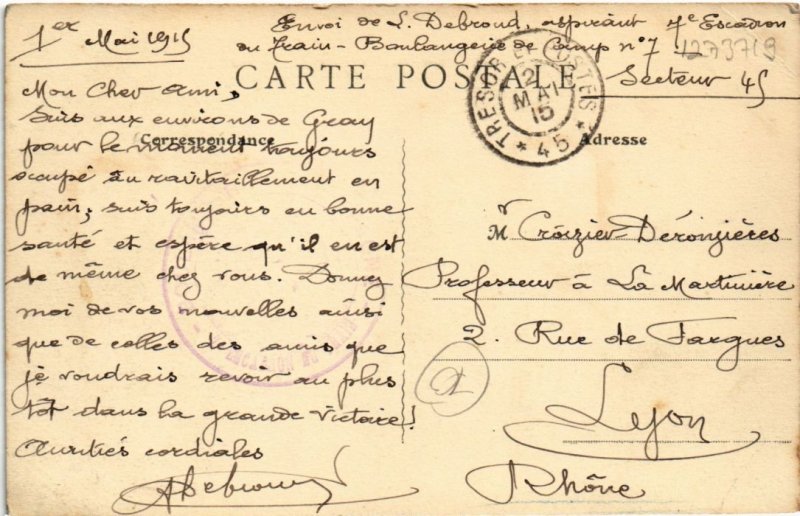 1er Mai 1915
Envoi de L. Debroud, aspirant 7e Escadron
du Train - Boulangerie de Camp n° 7
1273719
Secteur 45
CARTE POSTALE
TRESOR ET POSTES
12
MAI
15
* 45 *
Correspondance
Adresse
Mon Cher Ami,
Suis aux environs de Gray
pour le moment toujours
occupé au ravitaillement en
pain; suis toujours en bonne
santé et espère qu'il en est
de même chez vous. Donnez
moi de vos nouvelles ainsi
que de celles des amis que
je voudrais revoir au plus
tôt dans la grande Victoire!
Amitiés cordiales
Mr Croizier-Déronzières
Professeur à La Martinière
2. Rue de Fargues
Lyon
Rhône